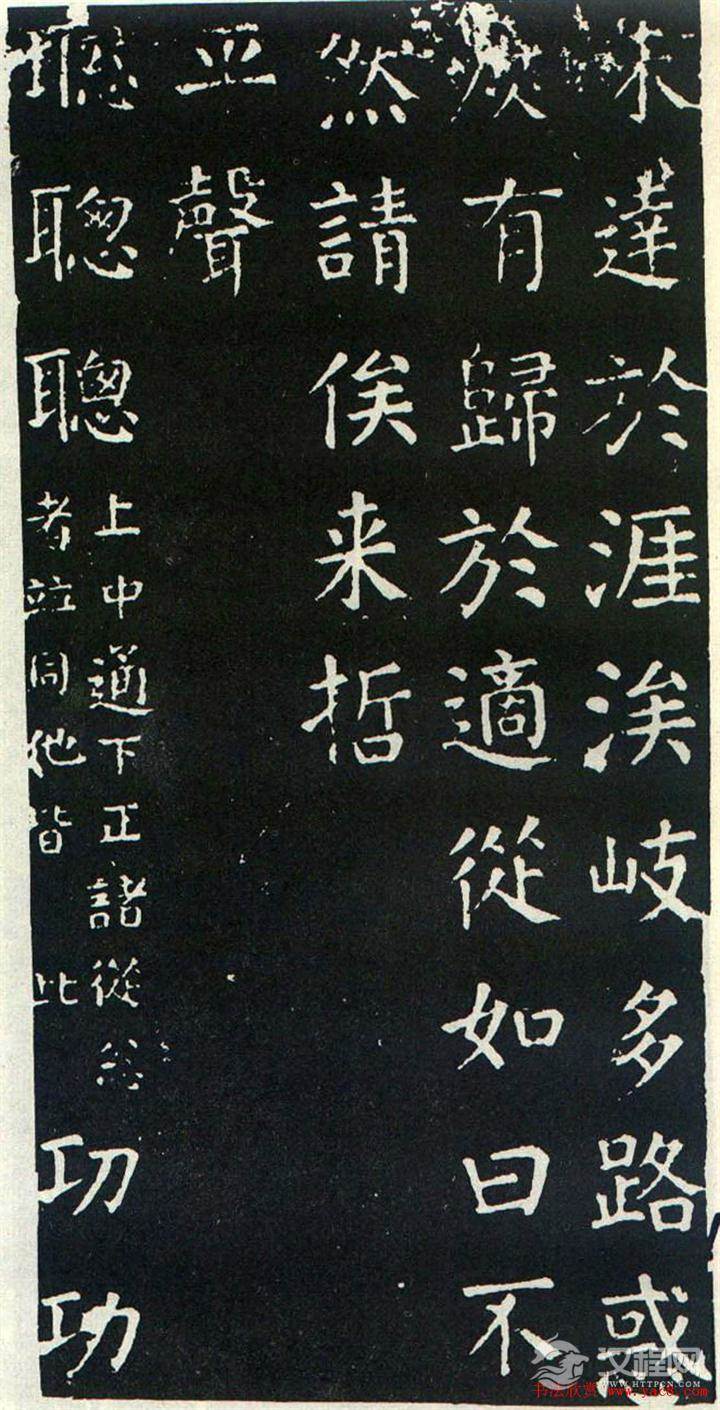 未達於涯涘岐多路惑
庶有歸於適從如曰不
然請俟来哲
平聲
聡聦聰
上中通下正諸從忩
者並同他皆此
㓛功
汉程网
WWW.HTTPCN.COM
书法欣赏 www.yac8.com